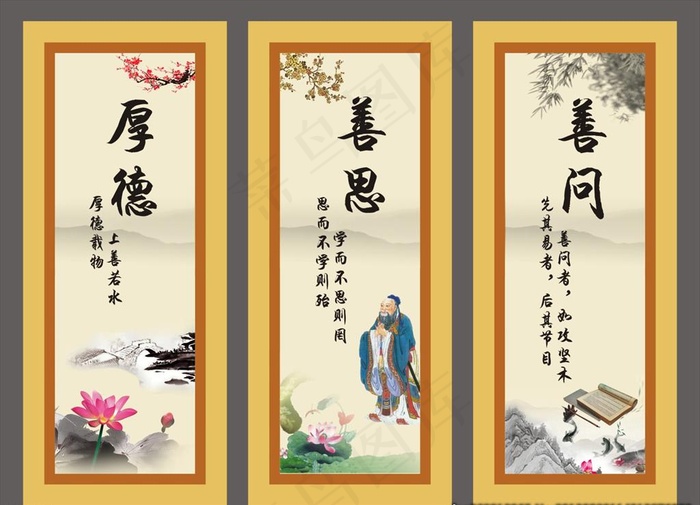 厚德
上善若水
厚德载物
善思
学而不思则罔
思而不学则殆
善问
善问者，如攻坚木
先其易者，后其节目
菜鸟图库